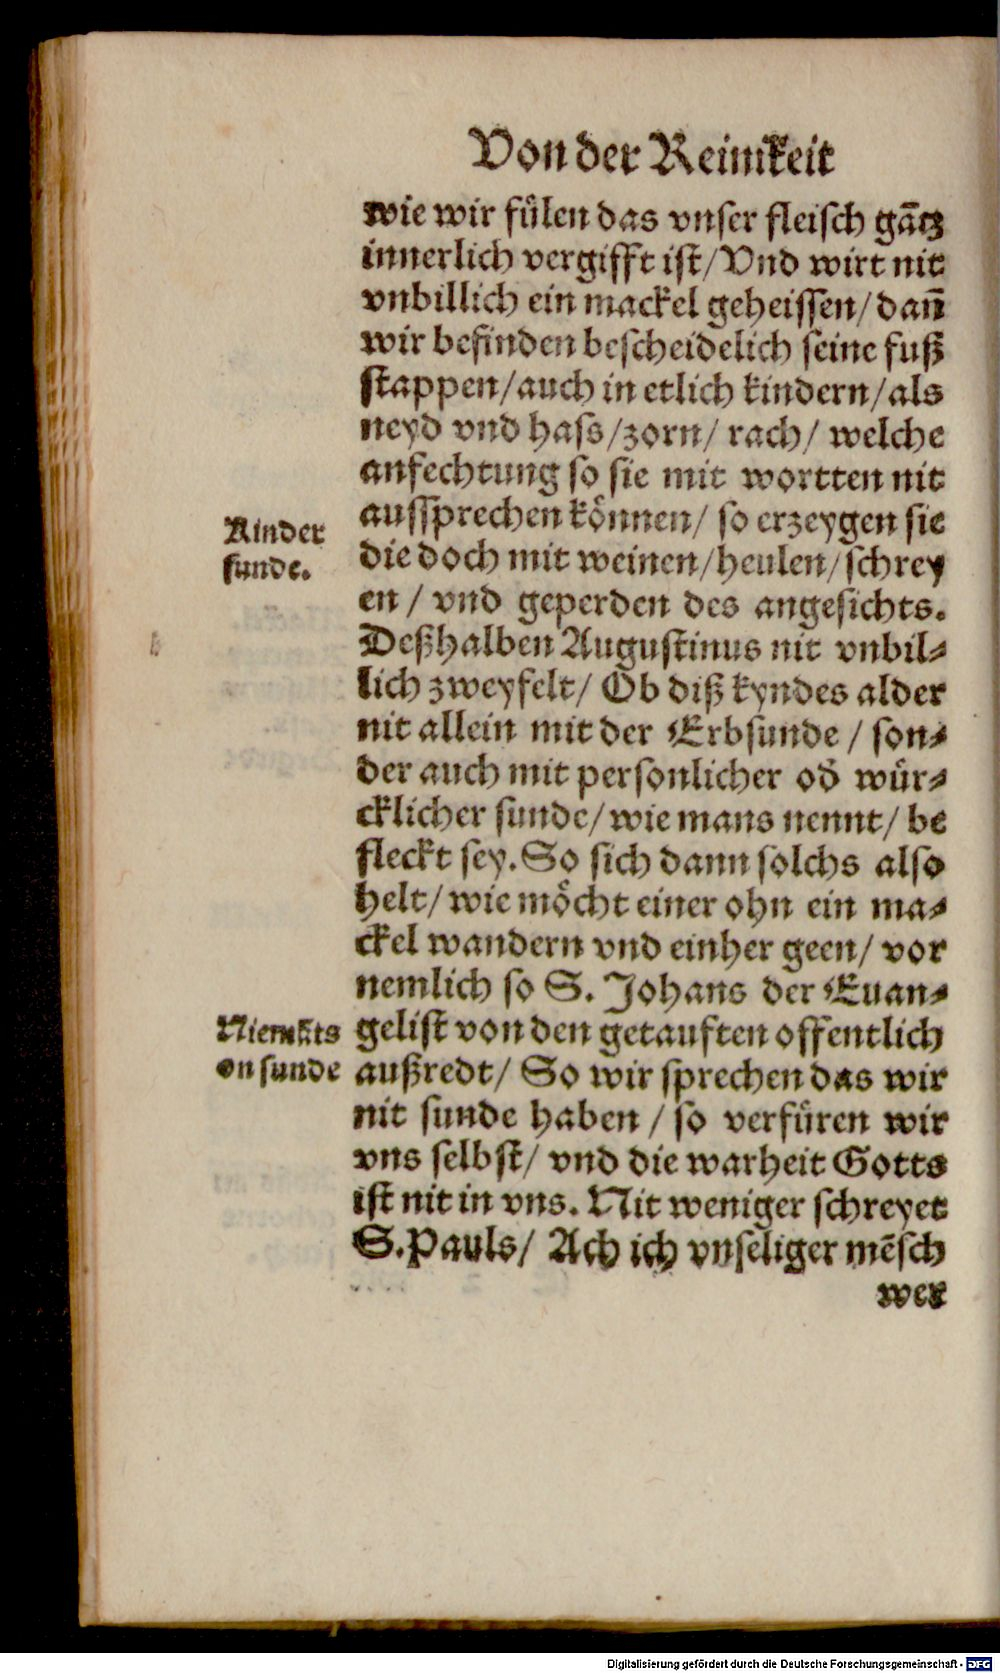 Von der Reinikeit
wie wir fülen das vnser fleisch gātz
innerlich vergifft ist/Vnd wirt nit
vnbillich ein mackel geheissen/dañ
wir befinden bescheidelich seine fuß
stappen/auch in etlich kindern/als
neyd vnd hass/zorn/ rach/ welche
anfechtung so sie mit wortten nit
aussprechen können/ so erzeygen sie
Kinder
sunde.
die doch mit weinen/heulen/schrey
en / vnd geperden des angesichts.
Deßhalben Augustinus nit vnbil⸗
lich zweyfelt/ Ob diß kyndes alder
nit allein mit der Erbsunde / son⸗
der auch mit personlicher od̄ wür⸗
cklicher sunde/ wie mans nennt/ be
fleckt sey. So sich dann solchs also
helt/ wie möcht einer ohn ein ma⸗
ckel wandern vnd einher geen/ vor
nemlich so S. Johans der Euan⸗
gelist von den getauften offentlich
on sunde
außredt/ So wir sprechen das wir
nit sunde haben / so verfüren wir
vns selbst/ vnd die warheit Gotts
ist nit in vns. Nit weniger schreyet
S. Pauls/ Ach ich vnseliger mēsch
wer
Digitalisierung gefördert durch die Deutsche Forschungsgemeinschaft - DFG